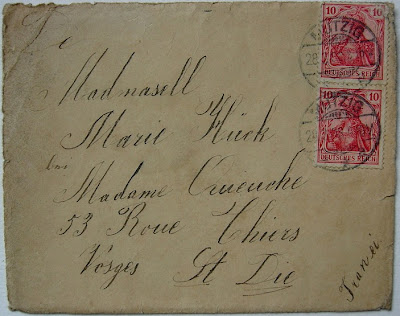 10 10
DEUTSCHES REICH
MUTZIG
28.
10 10
DEUTSCHES REICH
MUTZIG
Madmasell
Marie Kück
bei
Madame Crueuche
53 Roue Thiers
Vosges St Die